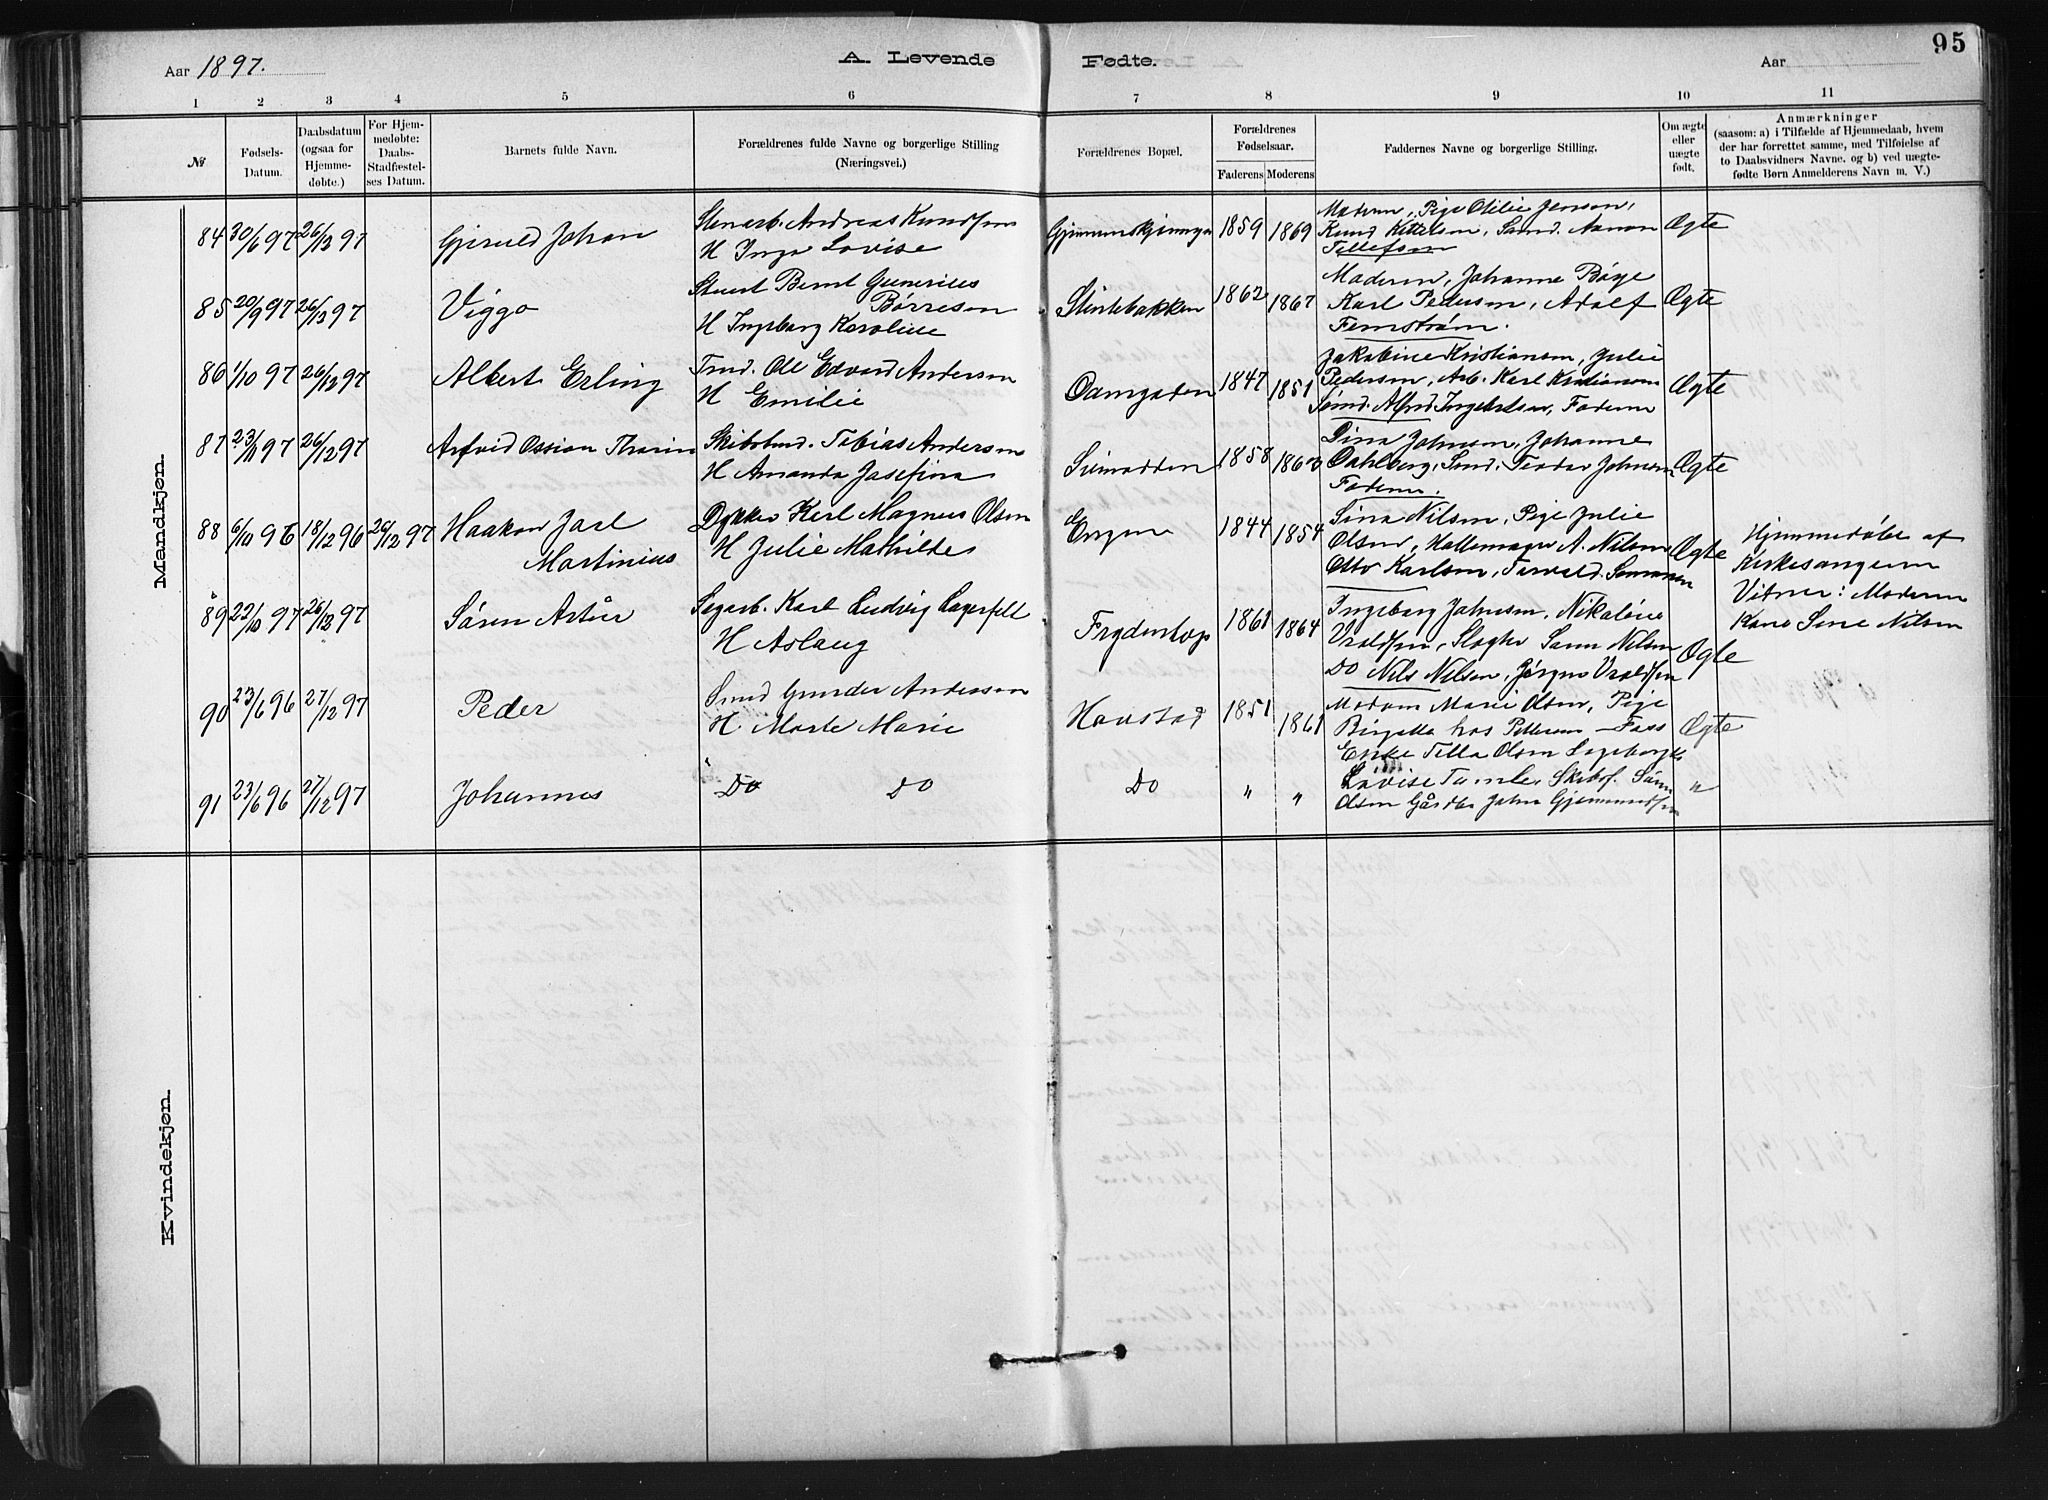 Aar 1897.
A. Levende Fødte.
Aar
95
1 2 3 4 5 6 7 8 9 10 11
№
Fødsels-Datum.
Daabsdatum (ogsaa for Hjemmedøbte.)
For Hjemmedøbte: Daabs-Stadfæstelses Datum.
Barnets fulde Navn.
Forældrenes fulde Navne og borgerlige Stilling (Næringsvei.)
Forældrenes Bopæl.
Forældrenes Fødselsaar.
Faderens Moderens
Faddernes Navne og borgerlige Stilling.
Om ægte eller uægte født.
Anmærkninger
(saasom: a) i Tilfælde af Hjemmedaab, hvem der har forrettet samme, med Tilføielse af to Daabsvidners Navne. og b) ved uægtefødte Børn Anmelderens Navn m. V.)
Mandkjøn.
84 30/6 97 26/12 97
Gjeruld Johan
Stenarb. Andreas Knudsen
H Inga Lovise
1859 1869
Moderen, Pige Otilie Jensen,
Knud Kittelsen, Smd. Aanon
Tellefsen
Ægte
85 20/9 97 26/12 97
Viggo
Stuert Bernt Gunerius
Børresen
H Ingeborg Karoline
Slintebakken
1862 1867
Moderen, Johanne Böye
Karl Pedersen, Adolf
Femström.
Ægte
86 1/10 97 26/12 97
Albert Erling
Tmd. Ole Edvard Andersen
H Emilie
1847 1851
Jakobine Kristiansen, Julie
Pedersen, Arb. Karl Kristiansen
Sömd. Alfred Ingebretsen, Faderen
Ægte
87 23/11 97 26/12 97
Arfvid Ossian Thorin
Skibstmd. Tobias Andersen
H Amanda Josefina
Svinodden
1858 1863
Dina Johnsen, Johanne
Dahlberg, Smd. Teodor Johnsen
Faderen.
Ægte
88 6/10 96 18/12 96 26/12 97
Haakon Jarl
Martinius
Dykker Karl Magnus Olsen
H Julie Mathilde
Engene
1844 1854
Sina Nilsen, Pige Julie
Olsen, A. Nilsen
Otto Karlsen,
Ægte
Hjemmedøbt af
Kirkesangeren
Vitner: Moderen
Kone Sine Nilsen
89 22/10 97 26/12 97
Sören Artür
Sagarb. Karl Ludvig Lagerfelt
H Aslaug
Frydentop
1861 1864
Ingeborg Johnsen, Nikoline
Vraldsen, Slagter Samm Nilsen
Do Nils Nilsen, Jörgen Vraldsen
Ægte
90 23/6 96 27/12 97
Peder
Smd Gunder Andersen
H. Marte Marie
Havstad
1851 1861
Madam Marie Olsen, Pige
Birgitta hos Pettersen
Enke Tella Olsen
Ægte
91 23/6 96 27/12 97
Johannes
Do Do
Do
" "
Lovise Skibsf. Sörn
Olsen Gårdbr John Gjemmundsen
"
Kvindekjøn.